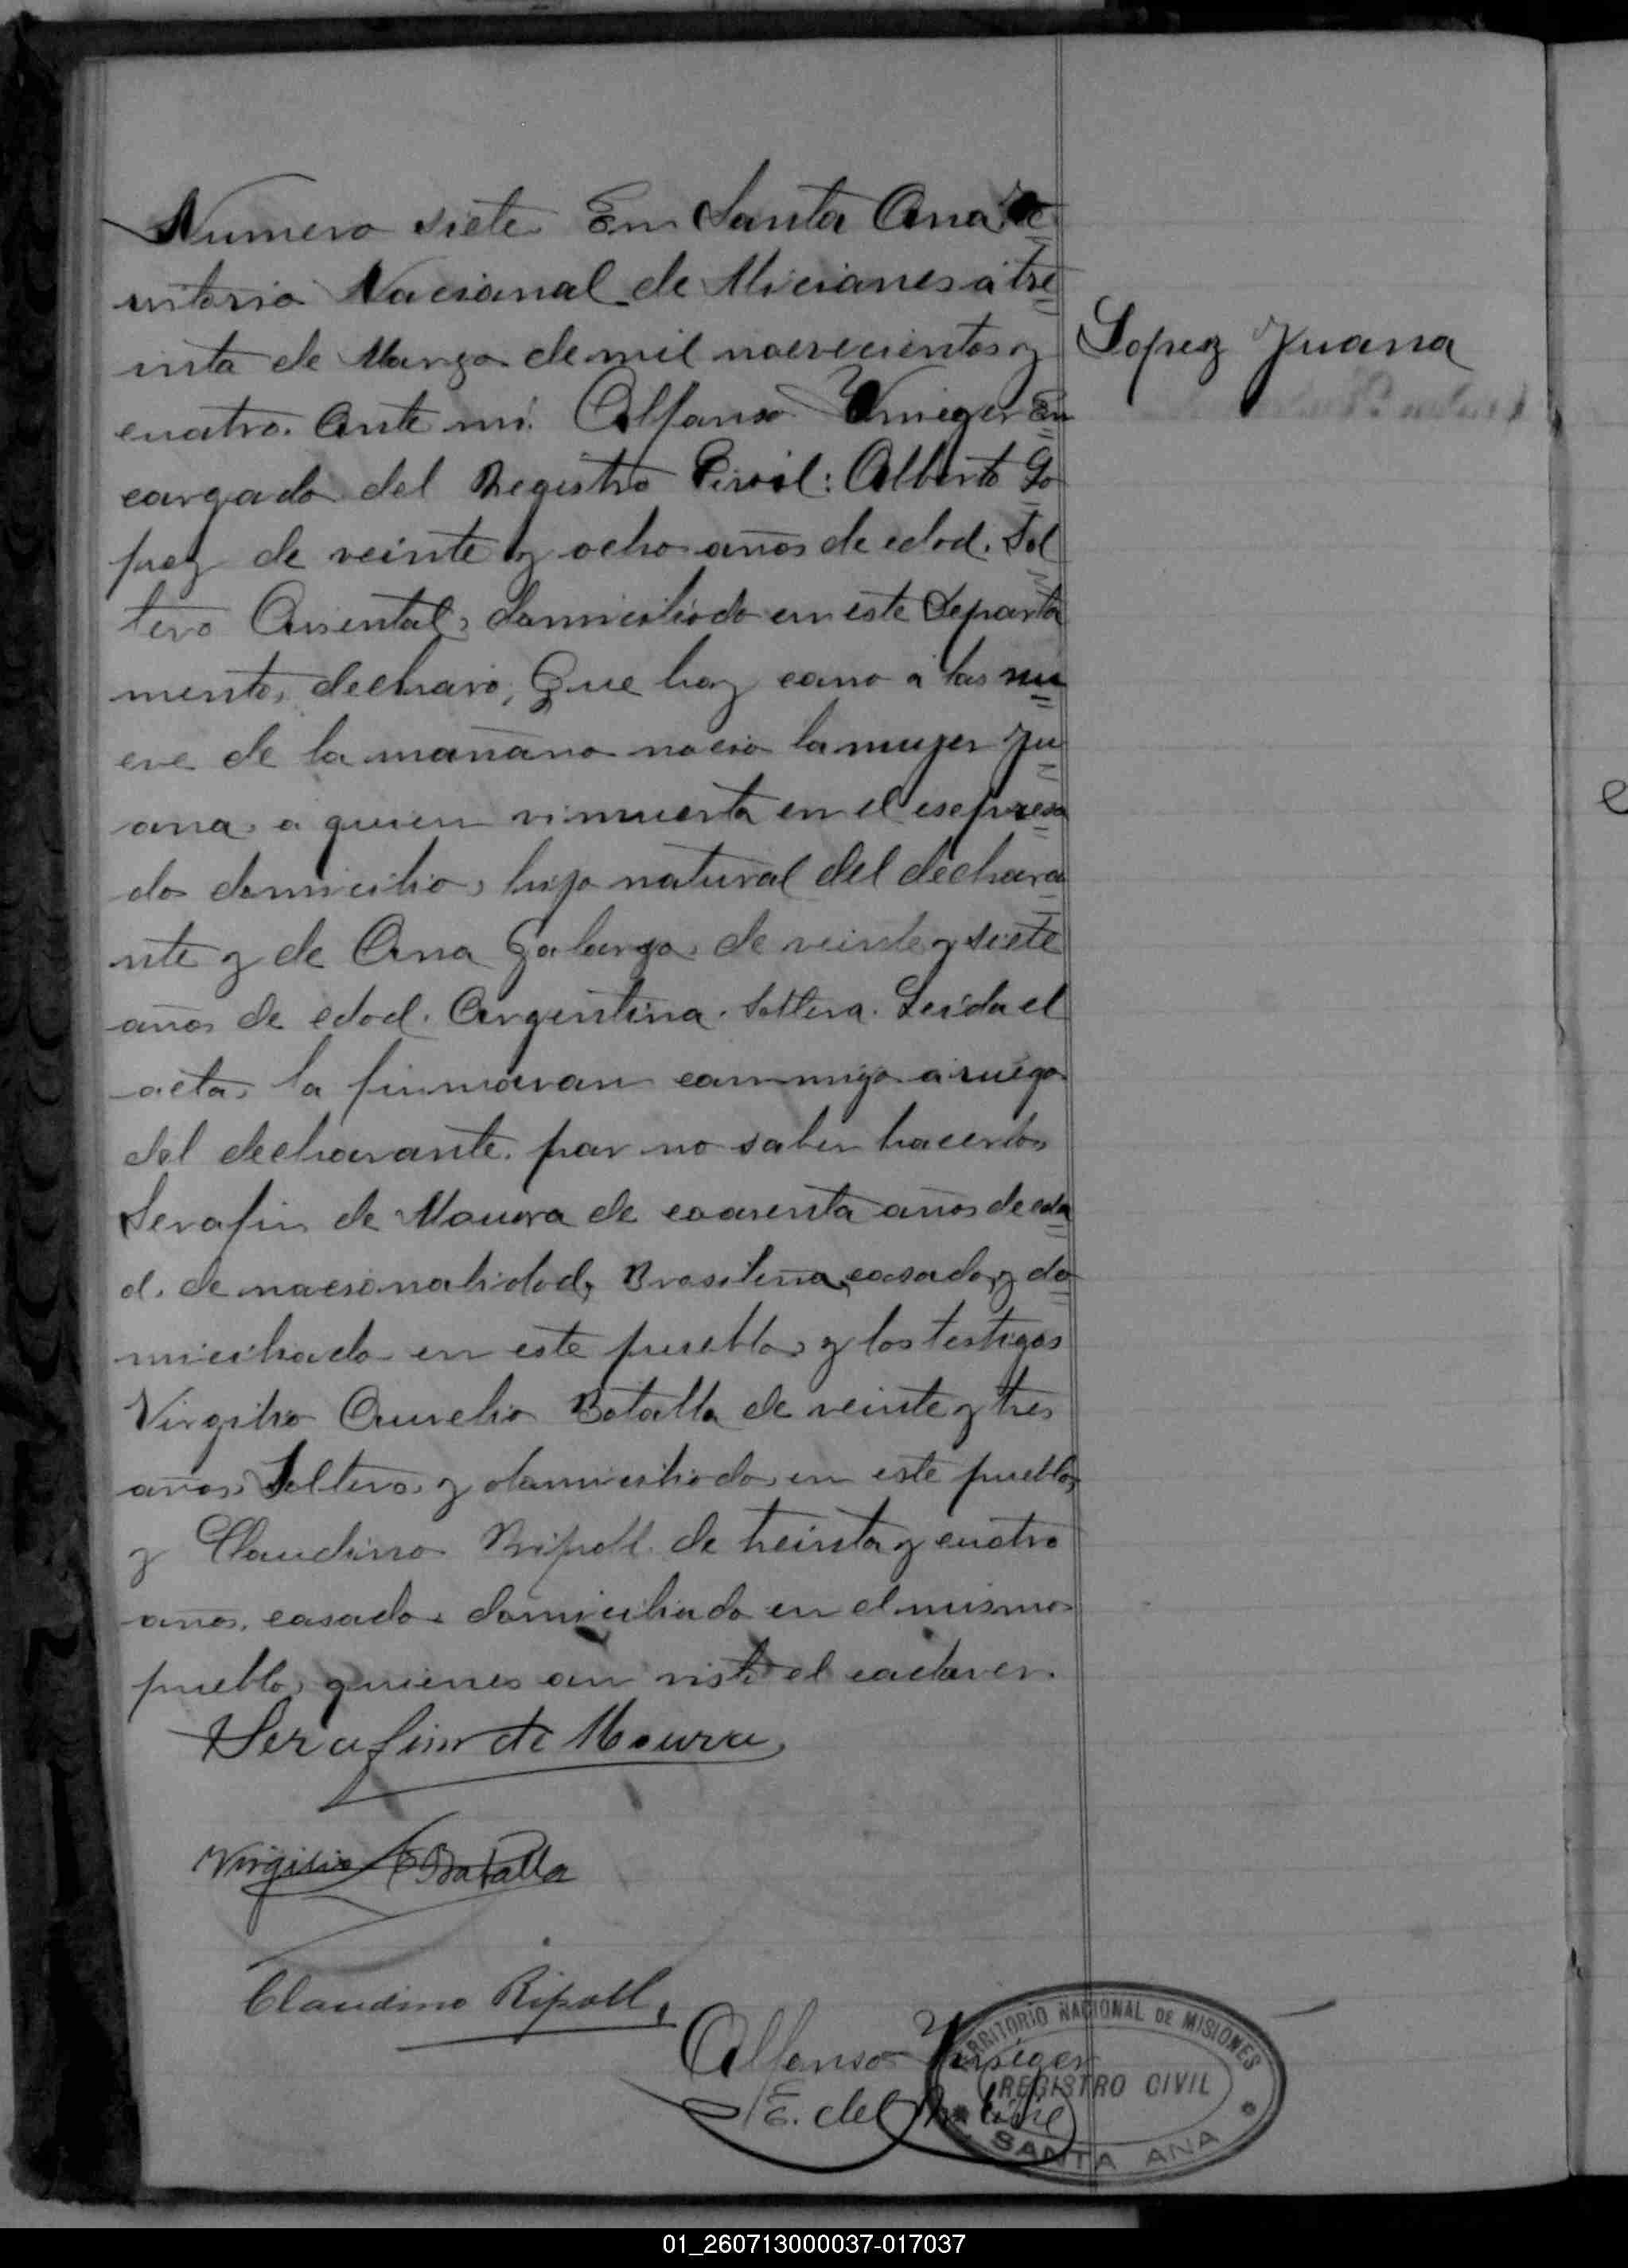 Numero siete En Santa Ana Te
rritorio Nacional de Miciones á tre
inta de Marzo de mil novecientos y
cuatro. Ante mi. Alfonso En
cargado del Registro Civil: Alberto Lo
pez de veinte y ocho años de edad. Sol
tero Oriental, domiciliado en este Departa
mento, declaro; Que hoy como a las nu
eve de la mañana nacio la mujer Ju
ana, a quien vi muerta en el espresa
do domicilio, hija natural del declara
nte y de Ana Galarza, de veinte y siete
años de edad. Argentina. Soltera. Leida el
acta, la firmaran conmigo a ruego
del declarante. por no saber hacerlo,
Serafin de Moura de cuarenta años de eda
d. de nacionalidad, Brasilera, casado, y do
miciliado en este pueblo, y los testigos
Virgilio Aurelio Batalla de veinte y tres
años, Soltero, y domiciliado, en este pueblo,
y Claudino Ripoll. de treinta y cuatro
años, casado, domiciliado en el mismo
pueblo, quienes an visto el cadaver.
Serafin de Moura
Virgilio A Batalla
Claudino Ripoll,
Alfonso
E. del R. Civil
TERRITORIO NACIONAL DE MISIONES
REGISTRO CIVIL
SANTA ANA
Lopez Juana
01_260713000037-017037